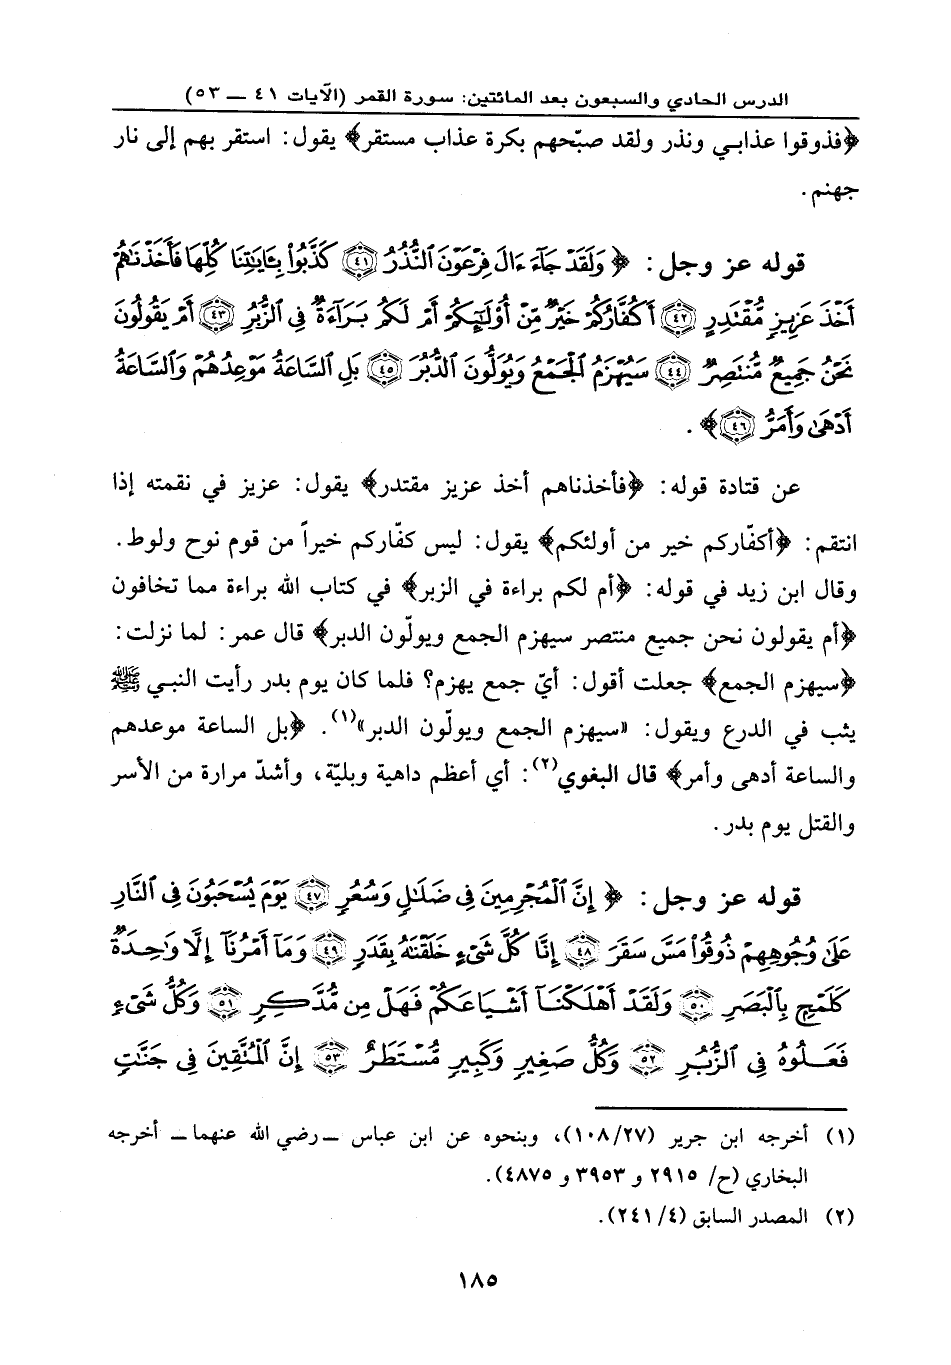 الدرس الحادي والسبعون بعد المائتين: سورة القمر (الآيات ٤١ – ٥٣)
﴿فذوقوا عذابي ونذر ولقد صبّحهم بكرة عذاب مستقر﴾ يقول: استقر بهم إلى نار
جهنم.
قوله عز وجل: ﴿ وَلَقَدْ جَآءَ ءَالَ فِرْعَوْنَ ٱلنُّذُرُ ٤١ كَذَّبُوا۟ بِـَٔايَٰتِنَا كُلِّهَا فَأَخَذْنَٰهُمْ
أَخْذَ عَزِيزٍ مُّقْتَدِرٍ ٤٢ أَكُفَّارُكُمْ خَيْرٌ مِّنْ أُو۟لَٰٓئِكُمْ أَمْ لَكُم بَرَآءَةٌ فِى ٱلزُّبُرِ ٤٣ أَمْ يَقُولُونَ
نَحْنُ جَمِيعٌ مُّنتَصِرٌ ٤٤ سَيُهْزَمُ ٱلْجَمْعُ وَيُوَلُّونَ ٱلدُّبُرَ ٤٥ بَلِ ٱلسَّاعَةُ مَوْعِدُهُمْ وَٱلسَّاعَةُ
أَدْهَىٰ وَأَمَرُّ ٤٦ ﴾.
عن قتادة قوله: ﴿فأخذناهم أخذ عزيز مقتدر﴾ يقول: عزيز في نقمته إذا
انتقم: ﴿أكفّاركم خير من أولئكم﴾ يقول: ليس كفّاركم خيراً من قوم نوح ولوط.
وقال ابن زيد في قوله: ﴿أم لكم براءة في الزبر﴾ في كتاب الله براءة مما تخافون
﴿أم يقولون نحن جميع منتصر سيهزم الجمع ويولّون الدبر﴾ قال عمر: لما نزلت:
﴿سيهزم الجمع﴾ جعلت أقول: أيّ جمع يهزم؟ فلما كان يوم بدر رأيت النبي ﷺ
يثب في الدرع ويقول: «سيهزم الجمع ويولّون الدبر»(١). ﴿بل الساعة موعدهم
والساعة أدهى وأمر﴾ قال البغوي(٢): أي أعظم داهية وبليّة، وأشدّ مرارة من الأسر
والقتل يوم بدر.
قوله عز وجل: ﴿ إِنَّ ٱلْمُجْرِمِينَ فِى ضَلَٰلٍ وَسُعُرٍ ٤٧ يَوْمَ يُسْحَبُونَ فِى ٱلنَّارِ
عَلَىٰ وُجُوهِهِمْ ذُوقُوا۟ مَسَّ سَقَرَ ٤٨ إِنَّا كُلَّ شَىْءٍ خَلَقْنَٰهُ بِقَدَرٍ ٤٩ وَمَآ أَمْرُنَآ إِلَّا وَٰحِدَةٌ
كَلَمْحٍۭ بِٱلْبَصَرِ ٥٠ وَلَقَدْ أَهْلَكْنَآ أَشْيَاعَكُمْ فَهَلْ مِن مُّدَّكِرٍ ٥١ وَكُلُّ شَىْءٍ
فَعَلُوهُ فِى ٱلزُّبُرِ ٥٢ وَكُلُّ صَغِيرٍ وَكَبِيرٍ مُّسْتَطَرٌ ٥٣ إِنَّ ٱلْمُتَّقِينَ فِى جَنَّٰتٍ
(١) أخرجه ابن جرير (١٠٨/٢٧)، وبنحوه عن ابن عباس – رضي الله عنهما – أخرجه
البخاري (ح/ ٢٩١٥ و ٣٩٥٣ و ٤٨٧٥).
(٢) المصدر السابق (٢٤١/٤).
١٨٥